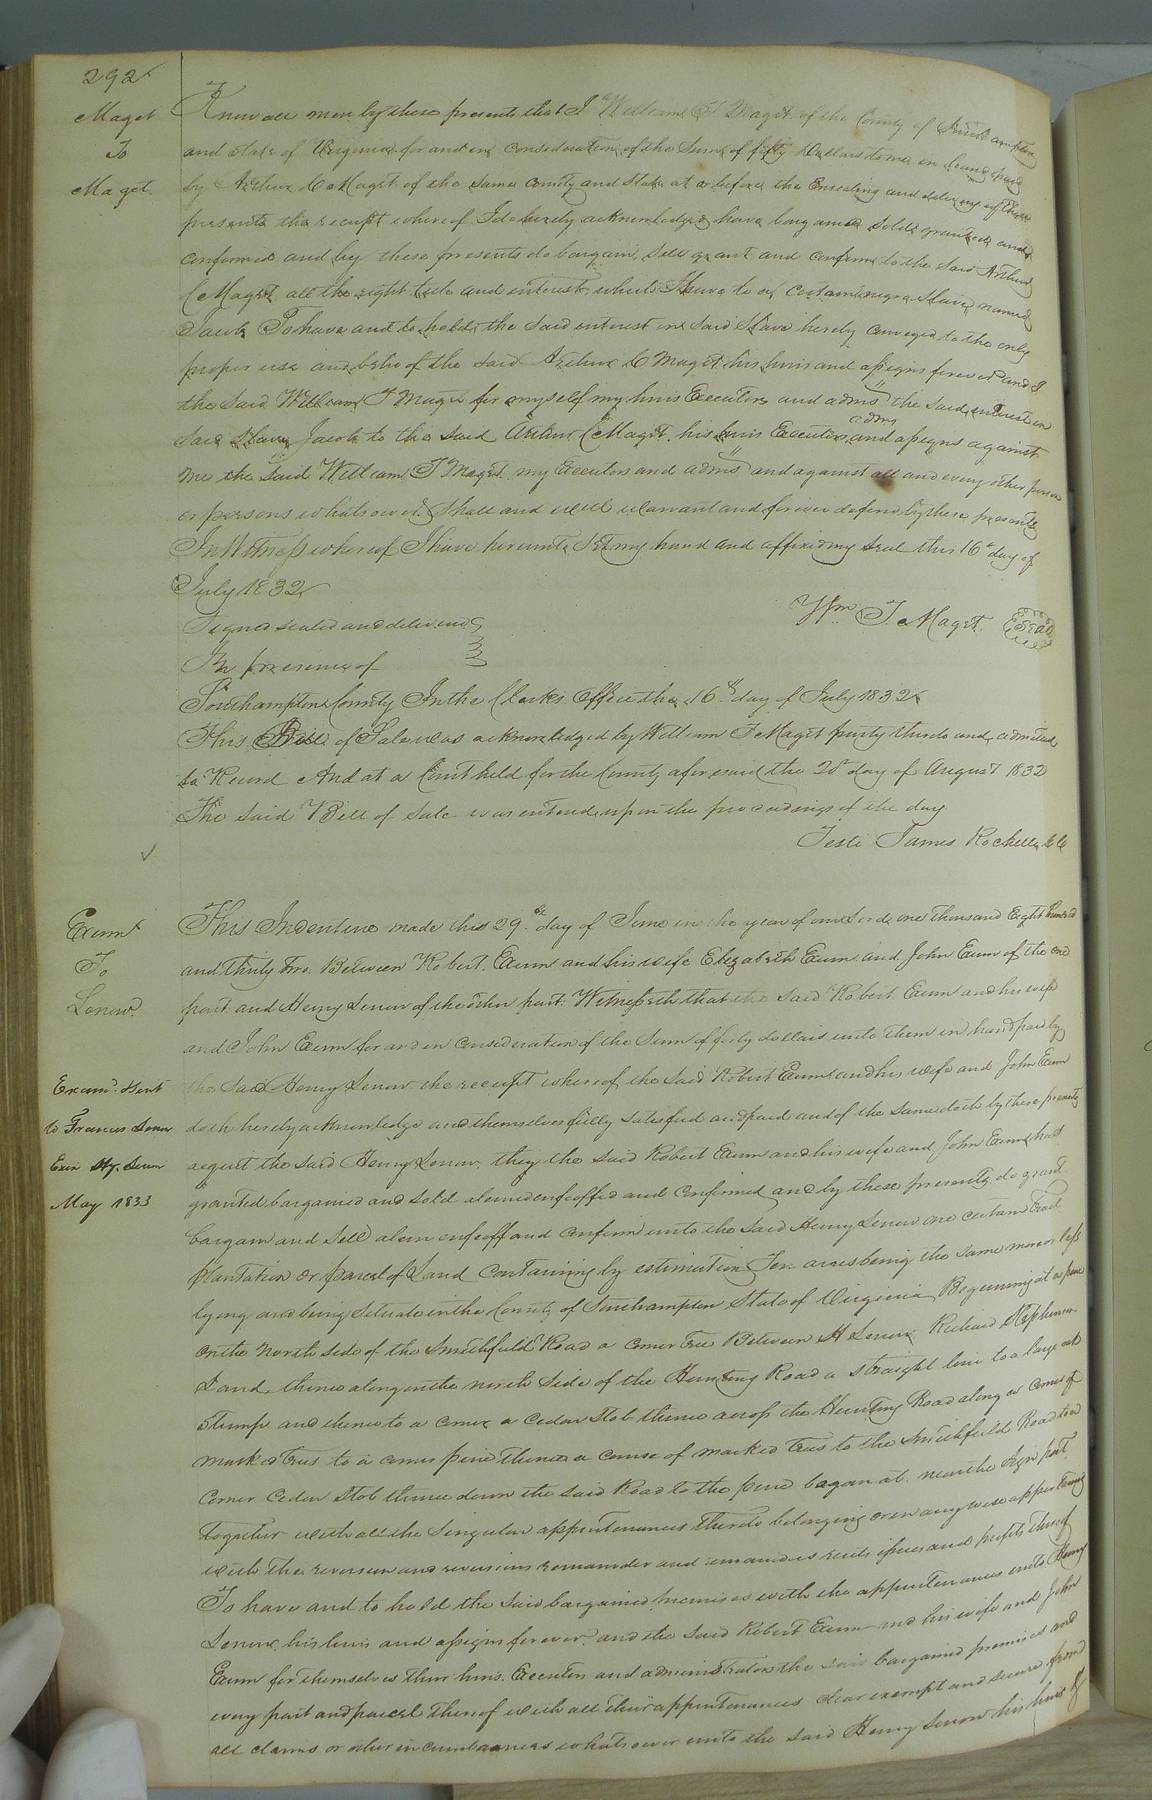 292
Maget
To
Maget
Know all men by these presents that I William T Maget of the County of Southampton
and state of Virginia for and in consideration of the Sum of fifty Dollars to me in hand paid
by Arthur C Maget of the same County and State at or before the Ensealing and delivery of these
presents the receipt whereof I do hereby acknowledge have bargained sold granted and
confirmed and by these presents do bargain, sell grant and confirm to the said Arthur
C Maget all the right title and interest which I have to a certain negro Slave named
Jacob To have and to hold the said interest in said Slave hereby conveyed to the only
proper use and behoof of the said Arthur C Maget his heirs and assigns forever and I
the said William T Maget for myself my heirs Executors and adms the said interest in
said Slave Jacob to the said Arthur C Maget his heirs Executors adms and assigns against
me the said William T Maget my Executors and adms and against all and every other person
or persons whatsoever Shall and will warrant and forever defend by these presents
In Witness whereof I have hereunto Set my hand and affixed my seal this 16th day of
July 1832
Wm T. Maget Seal
Signed sealed and delivered
In presence of
Southampton County In the Clerks Office the 16th day of July 1832
This Bill of Sale was acknowledged by William T Maget party thereto and admitted
to Record And at a Court held for the County aforesaid the 20 day of August 1832
The said Bill of Sale was entered upon the proceedings of the day
Teste James Rochelle CC
Exum
To
Lenow
Examd & sent
to Frances Lenow
Exix Hy. Lenow
May 1833
This Indenture made this 29th day of June in the year of our Lord one thousand Eight hundred
and thirty two Between Robert Exum and his wife Elizabeth Exum and John Exum of the one
part and Henry Lenow of the other part. Witnesseth that the said Robert Exum and his wife
and John Exum for and in consideration of the Sum of forty dollars unto them in hand paid by
the Said Henry Lenow the receipt whereof the said Robert Exum and his wife and John Exum
doth hereby acknowledge and themselves fully satisfied and paid and of the same doth by these presents
acquit the said Henry Lenow, they the said Robert Exum and his wife and John Exum hath
granted bargained and sold aliened enfeoffed and confirmed and by these presents do grant
bargain and Sell alien enfeoff and confirm unto the said Henry Lenow one certain tract
plantation or parcel of Land Containing by estimation Ten acres being the same more or less
lying and being Situate in the County of Southampton State of Virginia Beginning at a pine
on the North side of the Smithfield Road a corner tree Between H Lenow Richard Stephenson
Land, thence along on the north side of the Hunting Road a straight line to a large oak
Stump and thence to a corner a cedar Stob thence across the Hunting Road along a corner of
marked trees to a corner pine thence a course of marked trees to the Smithfield Road to a
corner Cedar Stob thence down the said Road to the pine began at near the Sign post
together with all the Singular appurtenances thereto belonging or in any wise appertaining
with the reversion and reversions remainder and remainders rents issues and profits thereof
To have and to hold the said bargained premises with the appurtenances unto Henry
Lenow, his heirs and assigns forever and the said Robert Exum and his wife and John
Exum for themselves their heirs Executors and administrators the said bargained premises and
every part and parcel thereof with all their appurtenances clear exempt and secure from
all claims or other incumbrances whatsoever unto the said Henry Lenow his heirs &